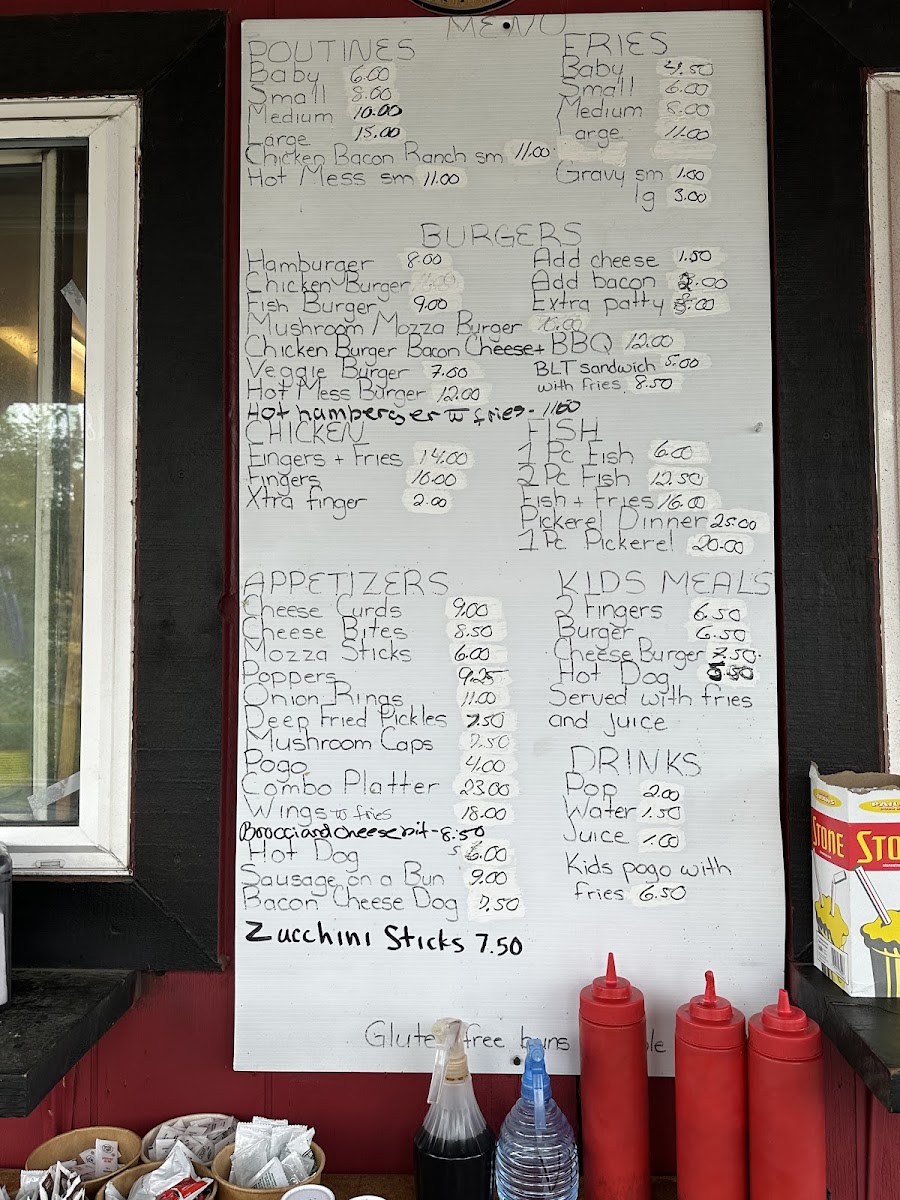 MENU
POUTINES
Baby 6.00
Small 8.00
Medium 10.00
Large 15.00
Chicken Bacon Ranch sm 11.00
Hot Mess sm 11.00
FRIES
Baby 4.50
Small 6.00
Medium 8.00
Large 11.00
Gravy sm 1.00
lg 3.00
BURGERS
Hamburger 8.00
Chicken Burger
Fish Burger 9.00
Mushroom Mozza Burger 10.00
Chicken Burger Bacon Cheese + BBQ 12.00
Veggie Burger 7.00
Hot Mess Burger 12.00
Hot hamberger w fries - 11.50
Add cheese 1.50
Add bacon 2.00
Extra patty
BLT sandwich 5.00
with fries 8.50
CHICKEN
Fingers + Fries 14.00
Fingers 10.00
Xtra finger 2.00
FISH
1 Pc Fish 6.00
2 Pc Fish 12.50
Fish + Fries 16.00
Pickerel Dinner 25.00
1 Pc Pickerel 20.00
APPETIZERS
Cheese Curds 9.00
Cheese Bites 8.50
Mozza Sticks 6.00
Poppers 9.25
Onion Rings 11.00
Deep Fried Pickles 7.50
Mushroom Caps 7.50
Pogo 4.00
Combo Platter 23.00
Wings w fries 18.00
8.50
Hot Dog 6.00
Sausage on a Bun 9.00
Bacon Cheese Dog 7.50
Zucchini Sticks 7.50
KIDS MEALS
2 Fingers 6.50
Burger 6.50
Cheese Burger 7.50
Hot Dog
Served with fries
and juice
DRINKS
Pop 2.00
Water 1.50
Juice 1.00
Kids pogo with
fries 6.50
free buns
STONE